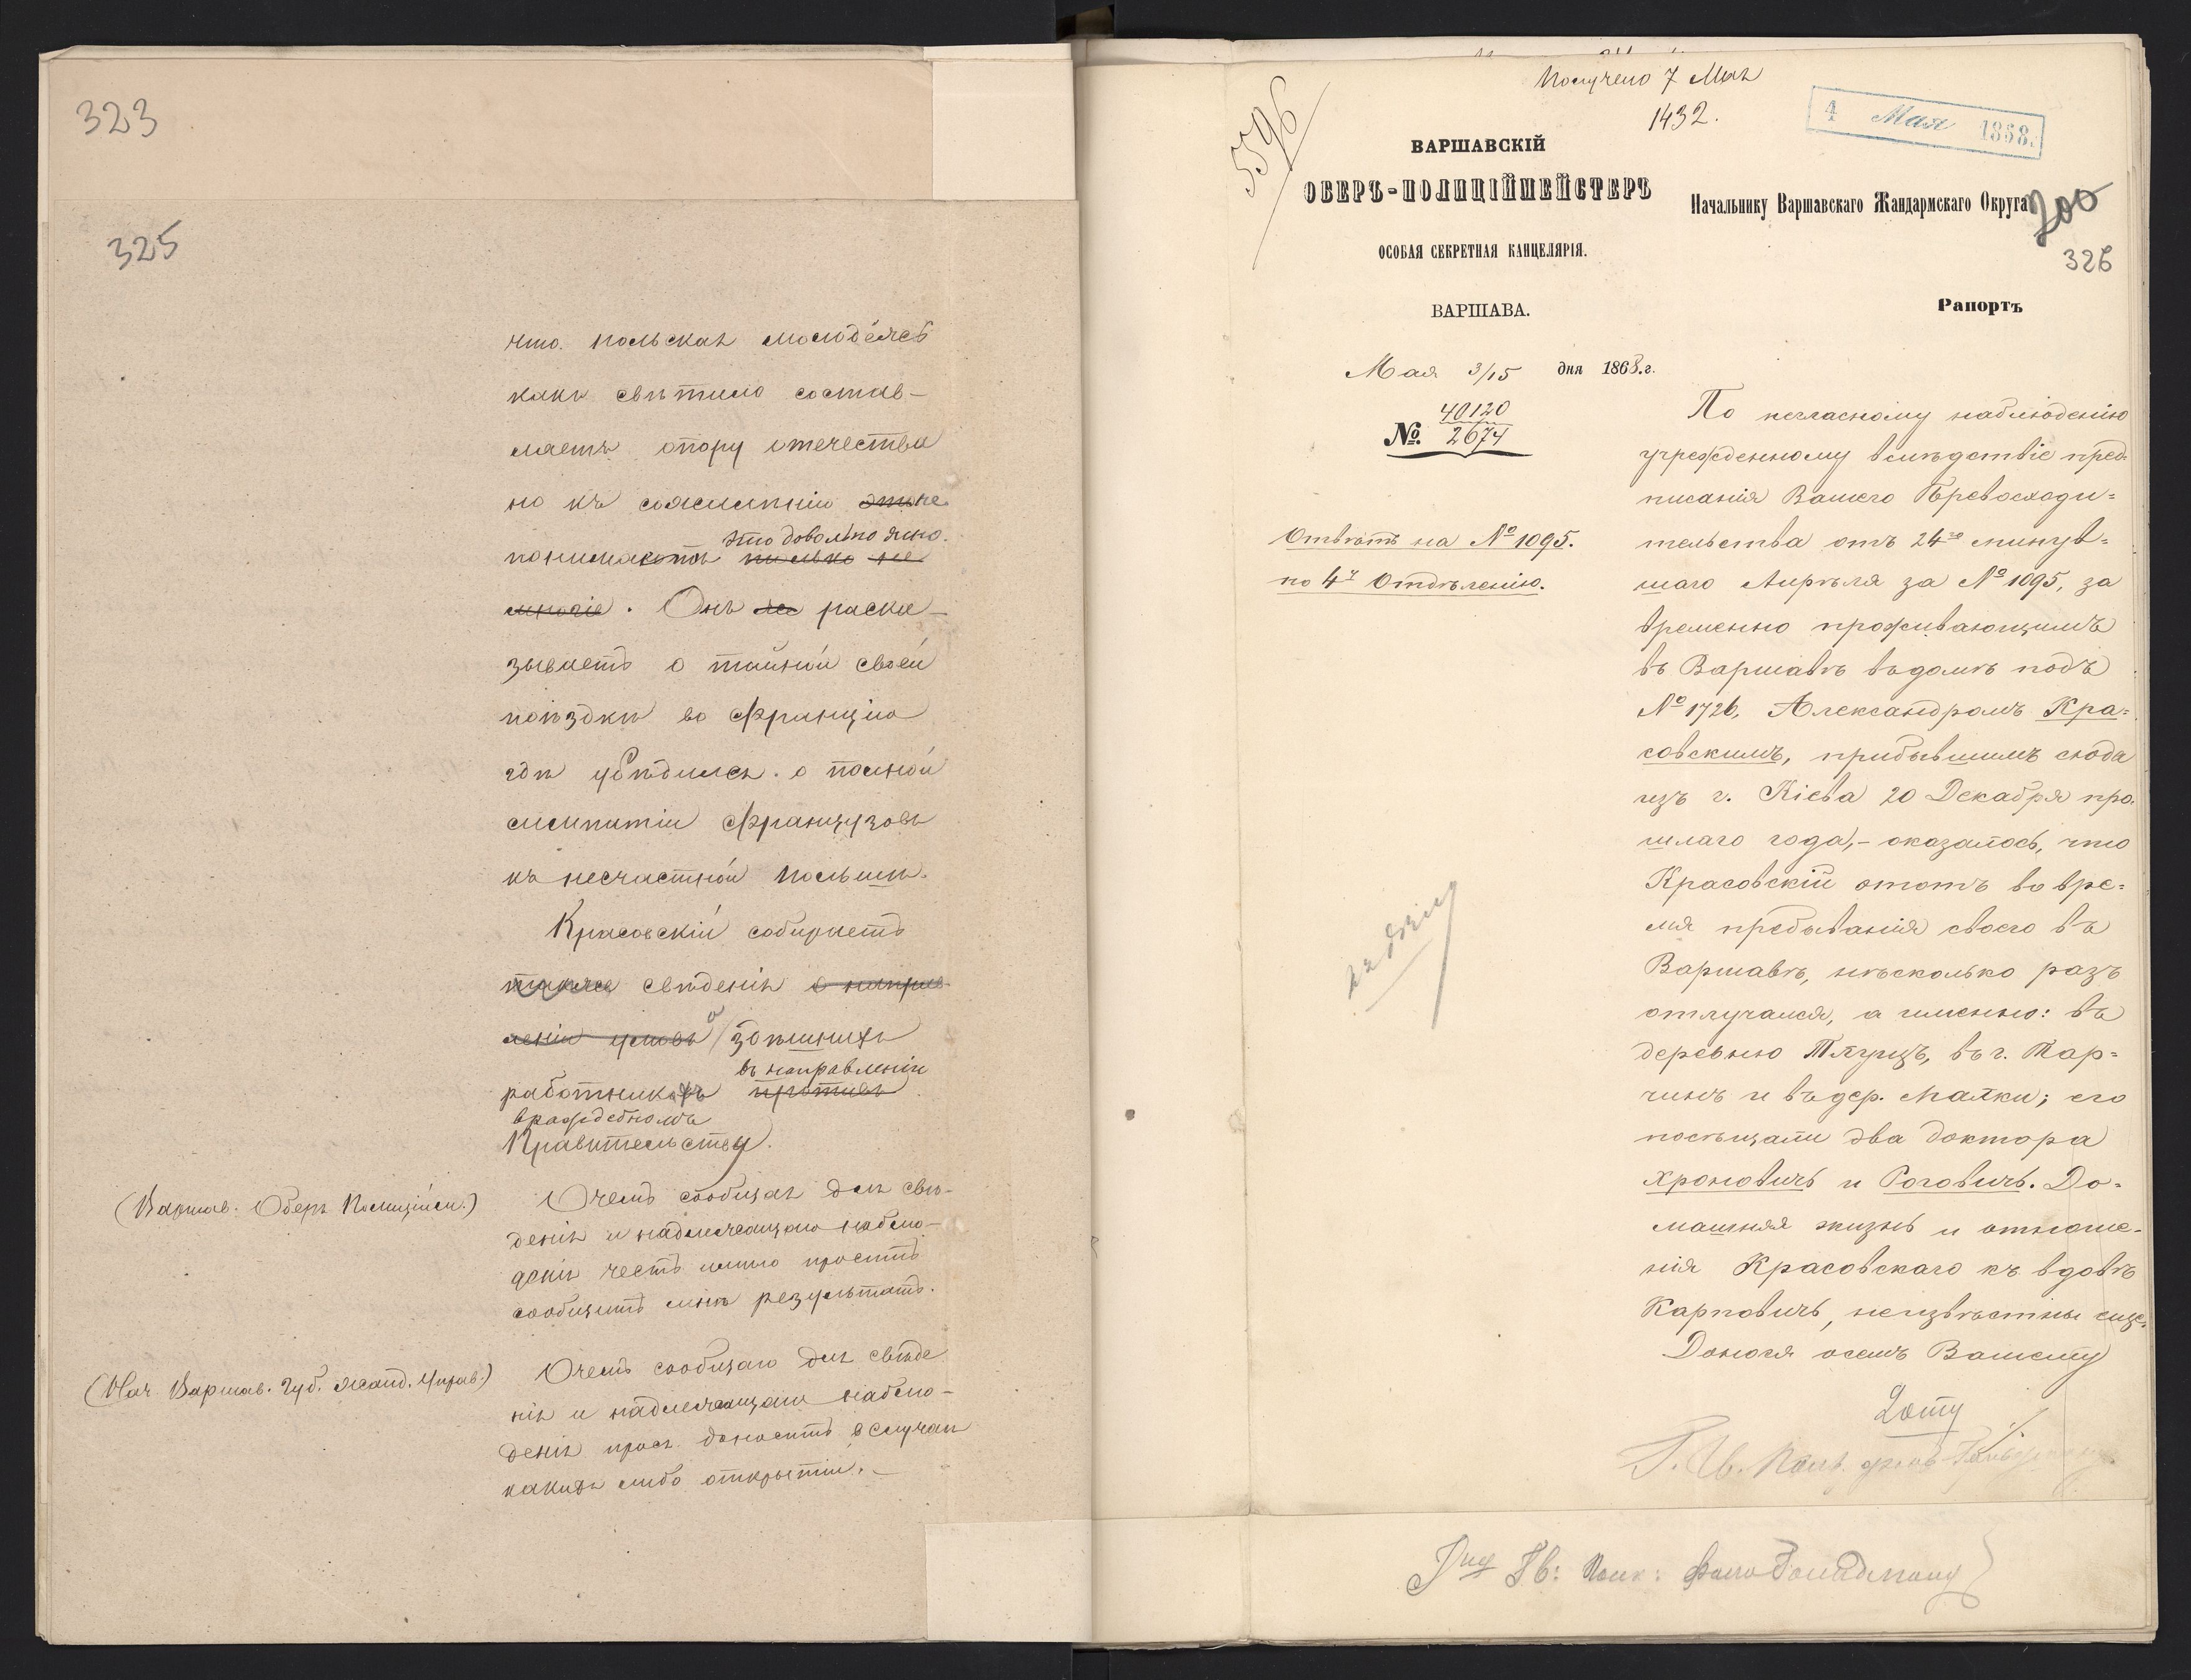 323
325
что польская молодёжь
какъ свѣтило состав-
ляетъ опору отечества
но къ сожалѣнію это не
это довольно ясно.
понимаютъ только не
многіе. Онъ раска-
зываетъ о тайной своей
поѣздкѣ во Францію
гдѣ убѣдился о полной
симпатіи Французовъ
къ несчастной Польшѣ.
Красовскій собираетъ
также свѣденія о направ-
леніи умовъ о здѣшнихъ
въ направленіи
работникахъ противъ
враждебномъ
Правительству.
(Варшав. Оберъ Полиційм.)
О чемъ сообщая для свѣ-
денія и надлежащаго наблю-
денія честь имѣю просить
сообщить мнѣ результатъ.
(Нач. Варшав. Губ. Жанд. Управ.)
О чемъ сообщаю для свѣде
нія и надлежащаго наблю-
денія прося доносить въ случаѣ
какихъ либо открытій.
Получено 7 Мая
1432.
4 Мая 1868.
5596
ВАРШАВСКІЙ
ОБЕРЪ-ПОЛИЦІЙМЕЙСТЕРЪ
ОСОБАЯ СЕКРЕТНАЯ КАНЦЕЛЯРІЯ.
ВАРШАВА.
Мая 3/15 дня 1868.г.
№ 40120
2674
Отвѣтъ на № 1095.
по 4у Отдѣленію.
Начальнику Варшавскаго Жандармскаго Округа
200
326
Рапортъ
По негласному наблюденію
учрежденному вслѣдствіе пред-
писанія Вашего Превосходи=
тельства отъ 24го минув=
шаго Апрѣля за № 1095, за
временно проживающимъ
въ Варшавѣ въ домѣ подъ
№ 1726, Александромъ Кра=
совскимъ, прибывшимъ сюда
изъ г. Кіева 20 Декабря про-
шлаго года,- оказалось, что
Красовскій этотъ во вре=
мя пребыванія своего въ
Варшавѣ, нѣсколько разъ
отлучался, а именно: въ
деревню Тлущъ, въ г. Тар=
чинъ и въ дер. Малки; его
посѣщали два доктора
Хроновичъ и Роговичъ. До=
машняя жизнь и отноше-
нія Красовскаго къ вдовѣ
Карповичъ, неизвѣстны еще.
Донося о семъ Вашему